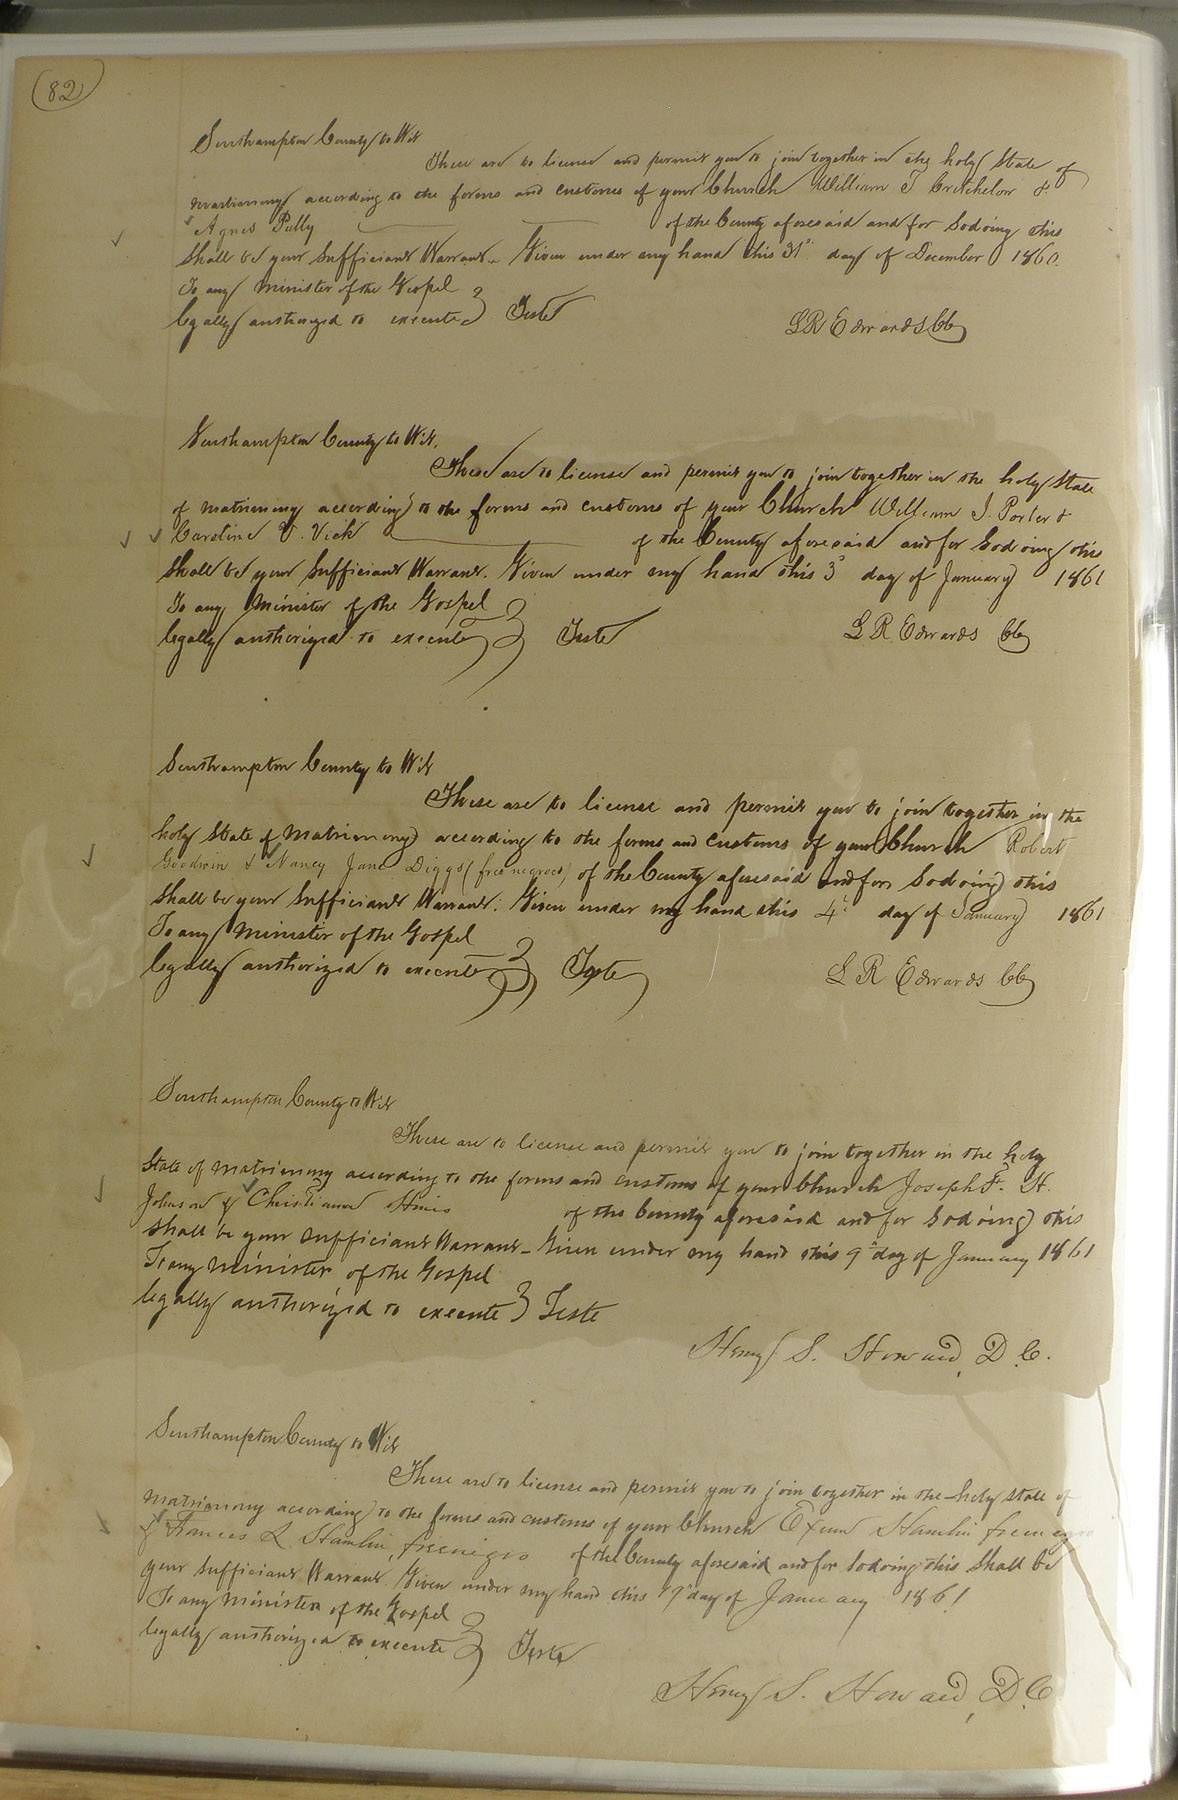 (82)
Southampton County to Wit
These are to license and permit you to join together in the holy state of
matrimony according to the forms and customs of your Church William T Critchelow &
Agnes Pully of the County aforesaid and for so doing this
shall be your sufficient Warrant. Given under my hand this 31st day of December 1860.
To any Minister of the Gospel
legally authorized to execute } Teste
L R Edwards CC
Southampton County to Wit.
These are to license and permit you to join together in the holy state
of matrimony according to the forms and customs of your Church William J. Porter &
Caroline V. Vick of the County aforesaid and for so doing this
shall be your sufficient Warrant. Given under my hand this 3d day of January 1861
To any Minister of the Gospel
legally authorized to execute } Teste
L R Edwards CC
Southampton County to Wit
These are to license and permit you to join together in the
holy State of Matrimony according to the forms and customs of your Church Robert
Goodwin & Nancy Jane Diggs (free negroes) of the County aforesaid and for so doing this
shall be your sufficient Warrant. Given under my hand this 4th day of January 1861
To any Minister of the Gospel
legally authorized to execute } Teste
L R Edwards CC
Southampton County to Wit
These are to license and permit you to join together in the holy
State of matrimony according to the forms and customs of your Church Joseph F. H.
Johnson & Christiana Hines of the County aforesaid and for so doing this
shall be your sufficient Warrant. Given under my hand this 9th day of January 1861
To any Minister of the Gospel
legally authorized to execute } Teste
Henry S. Howard, D.C.
Southampton County to Wit
These are to license and permit you to join together in the holy state of
matrimony according to the forms and customs of your Church Exum Hamlin free negro
& Frances L Hamlin, free negro of the County aforesaid and for so doing this shall be
your sufficient Warrant. Given under my hand this day of January 1861
To any Minister of the Gospel
legally authorized to execute } Teste
Henry S. Howard, D.C.